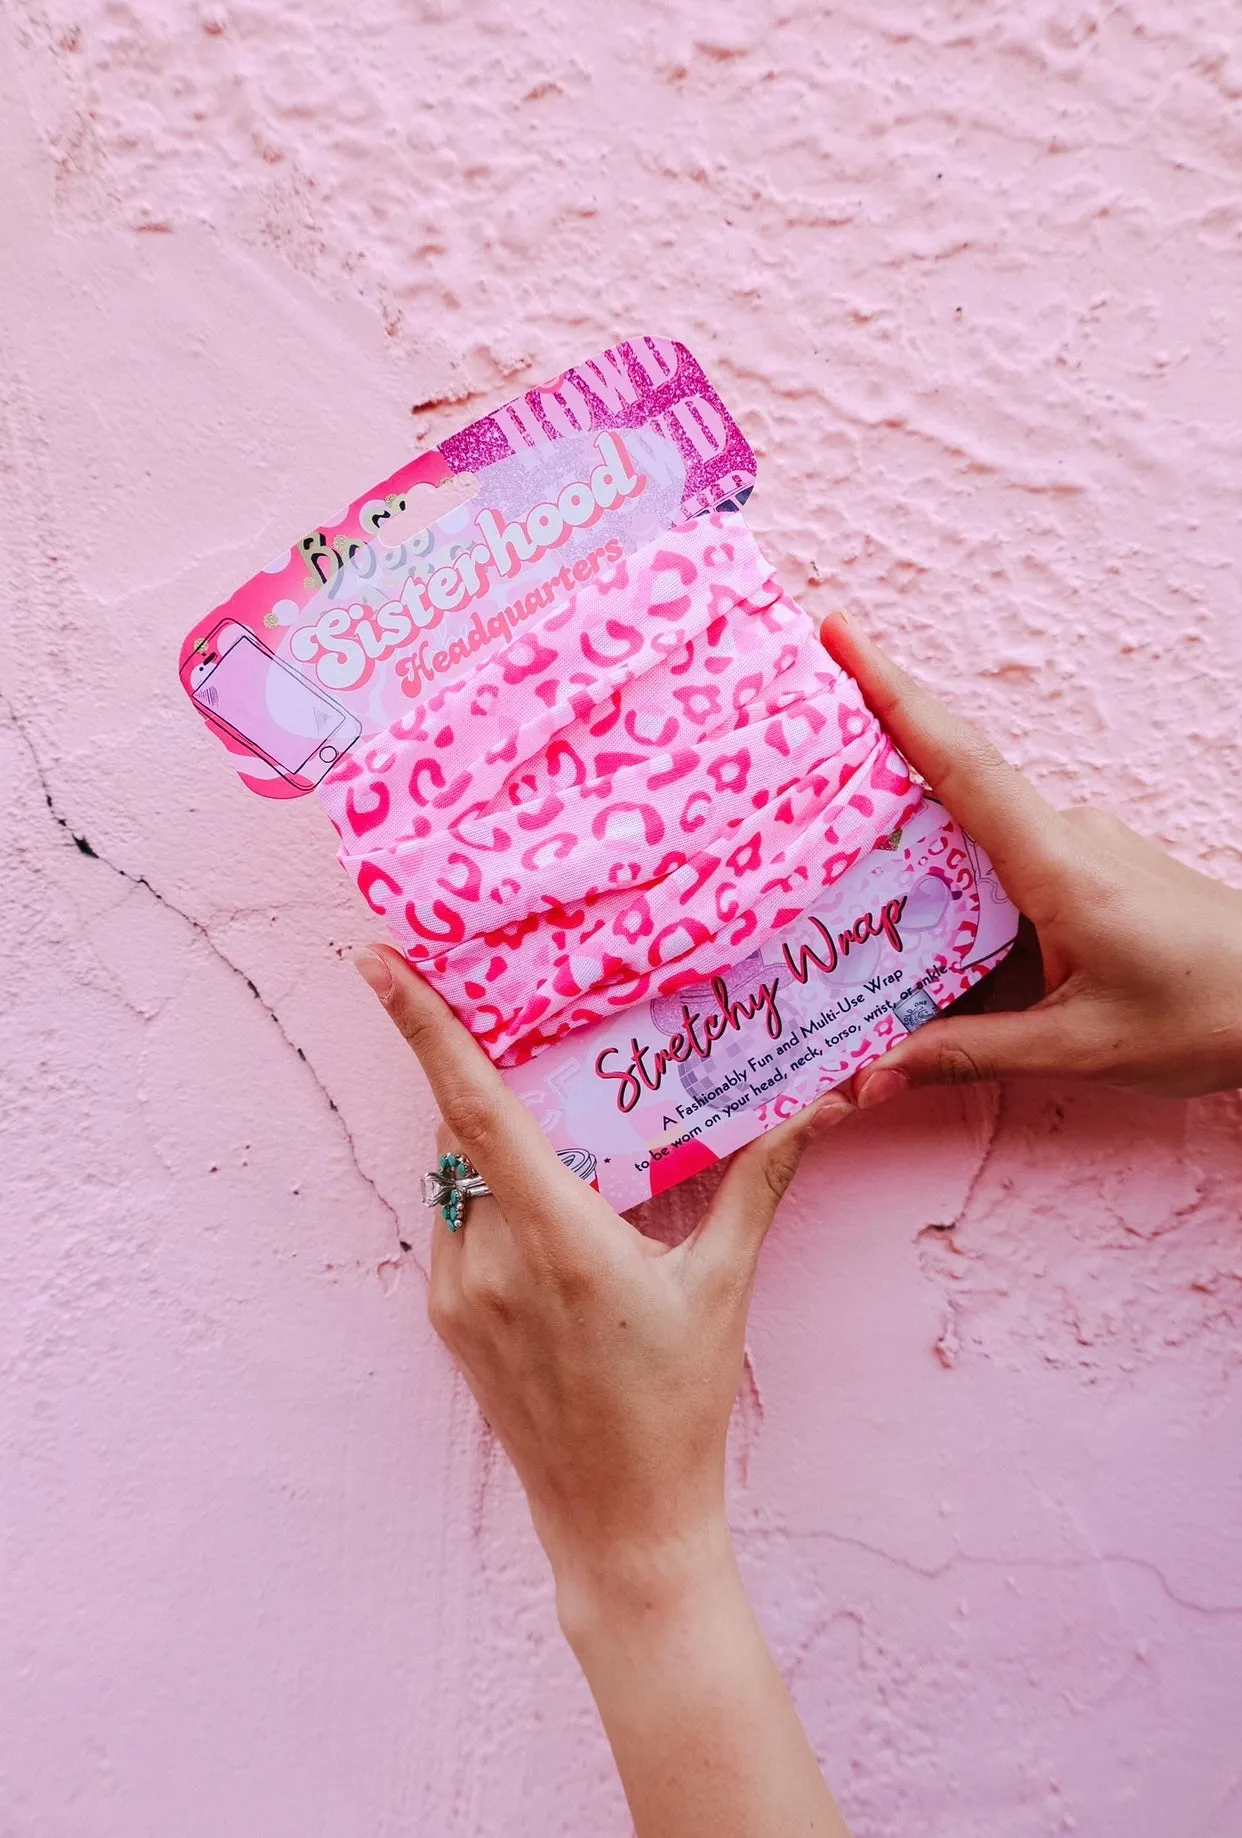 HOWD
WD
Boss
Sisterhood
Headquarters
Stretchy Wrap
A Fashionably Fun and Multi-Use Wrap
to be worn on your head, neck, torso, wrist, or ankle.
ONE